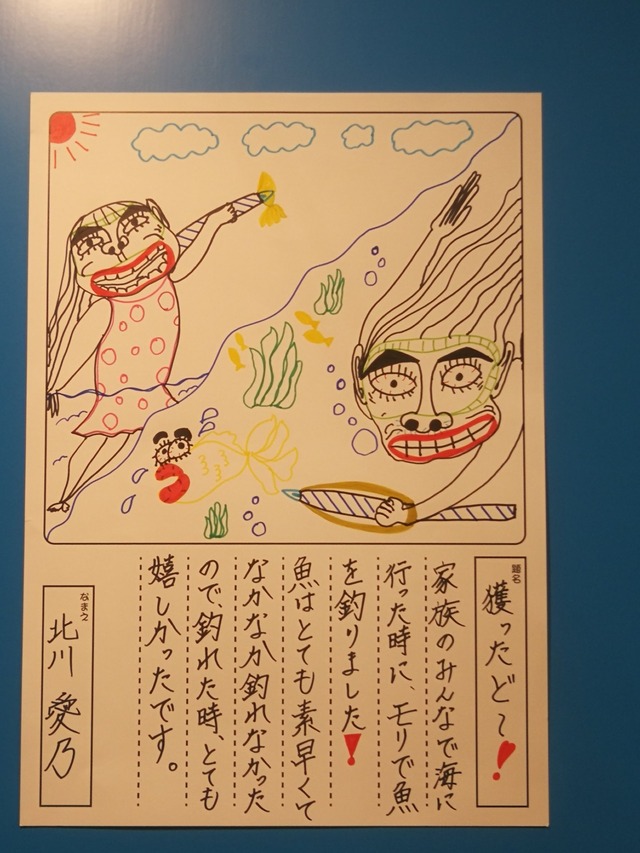 題名
獲ったど〜!
家族のみんなで海に
行った時に、モリで魚
を釣りました!
魚はとても素早くて
なかなか釣れなかった
ので、釣れた時、とても
嬉しかったです。
なまえ
北川 愛乃